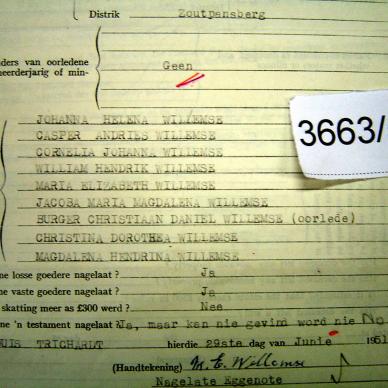 Distrik Zoutpansberg
ders van oorledene
eerderjarig of min-
Geen
JOHANNA HELENA WILLEMSE
CASPER ANDRIES WILLEMSE
3663/
CORNELIA JOHANNA WILLEMSE
WILLIAM HENDRIK WILLEMSE
MARIA ELIZABETH WILLEMSE
JACOBA MARIA MAGDALENA WILLEMSE
BURGER CHRISTIAAN DANIEL WILLEMSE (oorlede)
CHRISTINA DOROTHEA WILLEMSE
MAGDALENA HENDRINA WILLEMSE
ne losse goedere nagelaat ? Ja
ne vaste goedere nagelaat ? Ja
skatting meer as £300 werd ? Nee
ne 'n testament nagelaat ? Ja, maar kan nie gevind word nie No
UIS TRICHARDT hierdie 29ste dag van Junie 1951
(Handtekening) M. E. Willemse
Nagelate Eggenote